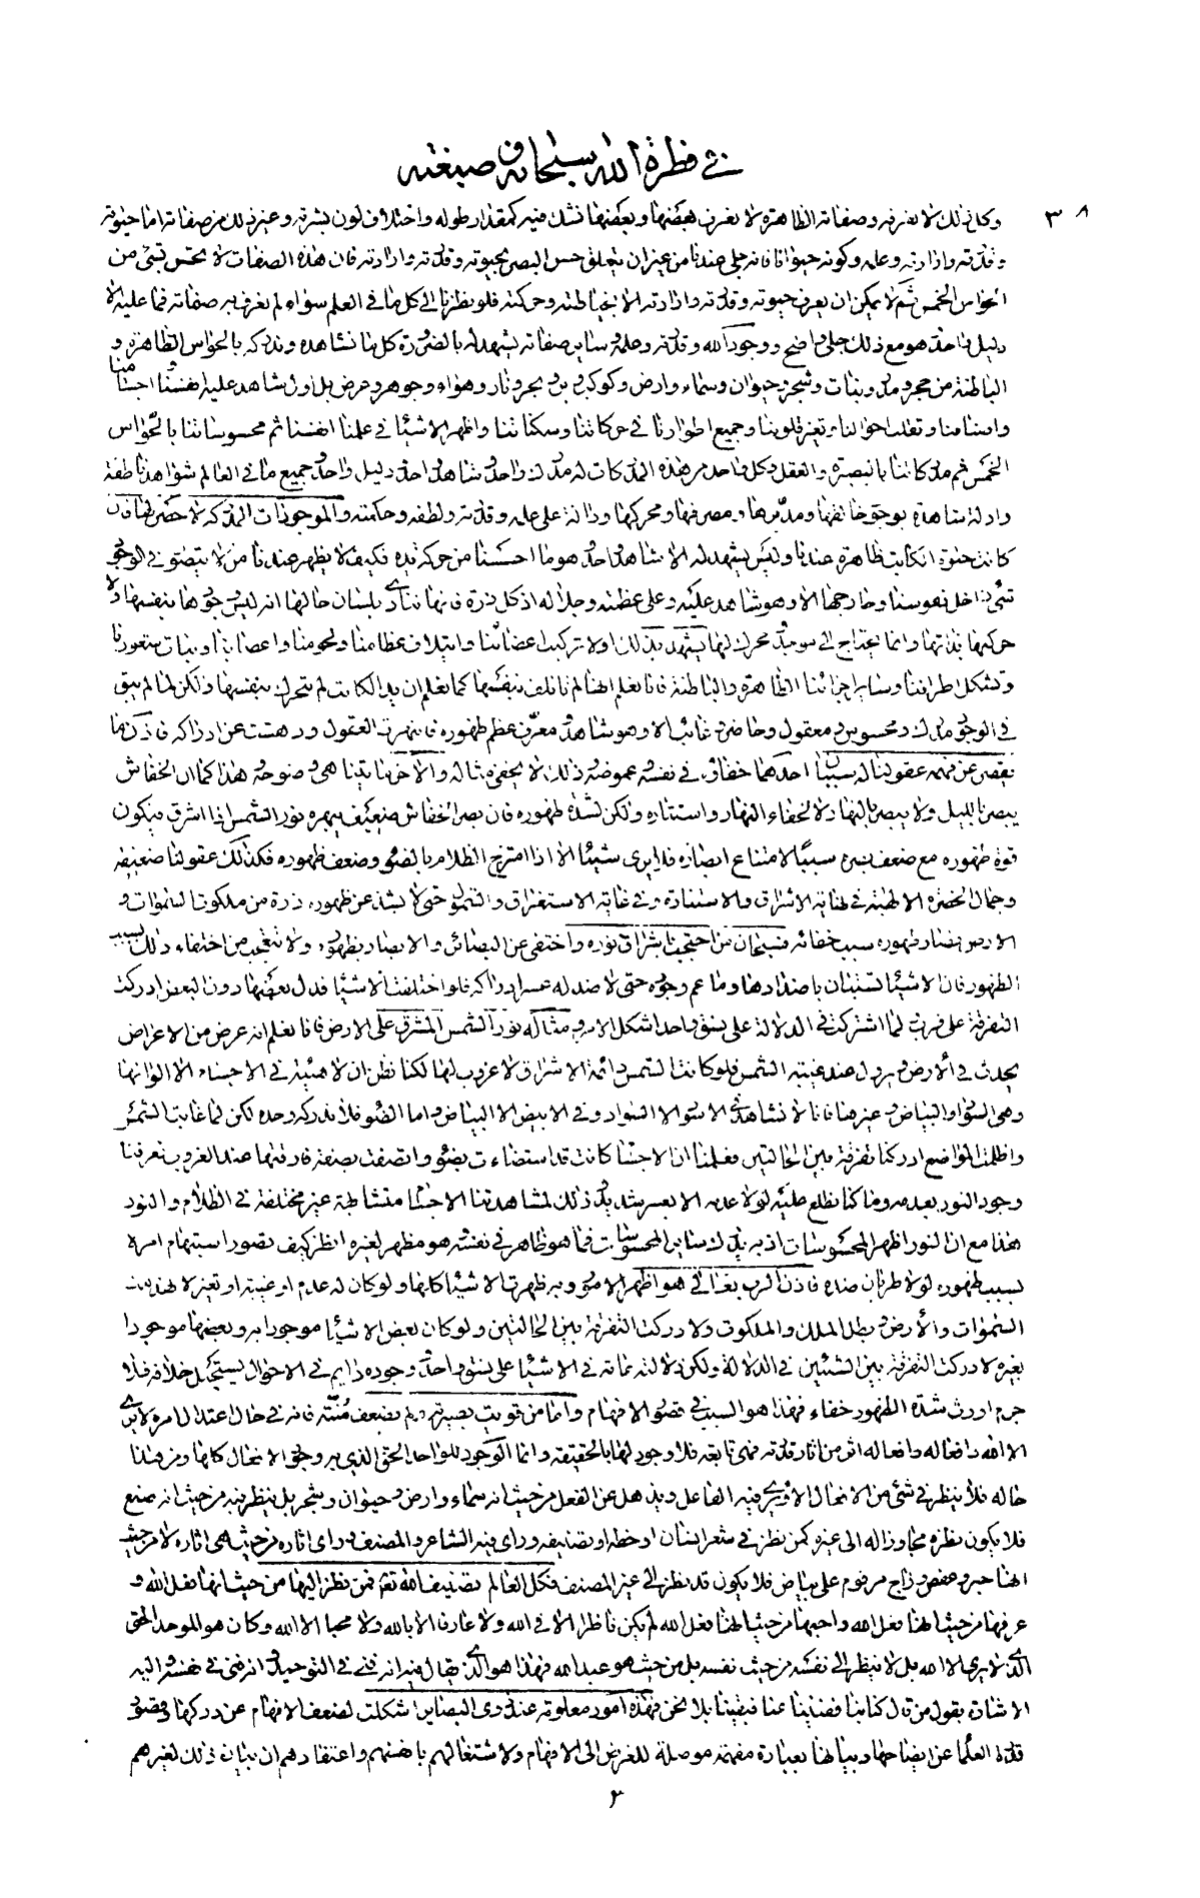 في فطرة الله سبحانه و صبغته
٣٨
وكل ذلك لا نعرفه وصفاته الظاهرة لا نعرف بعضها وبعضها نشك فيه كمقدار طوله واختلاف لون بشرته وغير ذلك من صفاته اما حيوته
وقدرته وارادته وعلمه وكونه حيوانا فانه جلي عندنا من غير ان يتعلق حس البصر بحيوته وقدرته وارادته فان هذه الصفات لا تحس بشئ من
الحواس الخمس ثم لا يمكن ان يعرف حيوته وقدرته وارادته الا بخياطته وحركته فلو نظرنا الى كل ما في العلم سواه لم نعرف به صفاته فما عليه الا
دليل واحد وهو مع ذلك جلي واضح ووجود الله وقدرته وعلمه وساير صفاته يشهد له بالضرورة كل ما نشاهده وندركه بالحواس الظاهرة و
الباطنة من حجر ومدر ونبات وشجر وحيوان وسماء وارض وكوكب وبر وبحر ونار وهواء وجوهر وعرض بل اول شاهد عليه انفسنا واجسامنا
واوصافنا وتقلب احوالنا وتغير قلوبنا وجميع اطوارنا في حركاتنا وسكناتنا واظهر الاشياء في علمنا انفسنا ثم محسوساتنا بالحواس
الخمس ثم مدركاتنا بالبصيرة والعقل وكل واحد من هذه المدركات له مدرك واحد وشاهد واحد ودليل واحد وجميع ما في العالم شواهد ناطقة
وادلة شاهدة بوجود خالقها ومدبرها ومصرفها ومحركها ودالة على علمه وقدرته ولطفه وحكمته والموجودات المدركة لا حصر لها فان
كانت حيوة الكاتب ظاهرة عندنا وليس يشهد له الا شاهد واحد وهو ما احسسنا من حركة يده فكيف لا يظهر عندنا من لا يتصور في الوجود
شئ داخل نفوسنا وخارجها الا وهو شاهد عليه وعلى عظمته وجلاله اذ كل ذرة فانها تنادي بلسان حالها انه ليس وجودها بنفسها ولا
حركتها بذاتها وانما يحتاج الى موجد ومحرك لها يشهد بذلك اولا تركيب اعضائنا وايتلاف عظامنا ولحومنا واعصابنا ونبات شعورنا
وتشكل اطرافنا وساير اجزائنا الظاهرة والباطنة فانا نعلم انها لم تاتلف بنفسها كما نعلم ان يد الكاتب لم تتحرك بنفسها ولكن لما لم يبق
في الوجود مدرك ومحسوس ومعقول وحاضر وغائب الا وهو شاهد ومعرف عظم ظهوره فانبهرت العقول ودهشت عن ادراكه فاذن ما
يقصر عن فهمه عقولنا له سببان احدهما خفاؤه في نفسه وغموضه وذلك لا يخفى مثاله والاخر ما يتناهى وضوحه وهذا كما ان الخفاش
يبصر بالليل ولا يبصر بالنهار لا لخفاء النهار واستتاره ولكن لشدة ظهوره فان بصر الخفاش ضعيف يبهره نور الشمس اذا اشرق فيكون
قوة ظهوره مع ضعف بصره سببا لامتناع ابصاره فلا يرى شيئا الا اذا امتزج الظلام بالضوء وضعف ظهوره فكذلك عقولنا ضعيفة
وجمال الحضرة الالهية في نهاية الاشراق والاستنارة وفي غاية الاستغراق والشمول حتى لا يشذ عن ظهوره ذرة من ملكوت السموات و
الارض فصار ظهوره سبب خفائه فسبحان من احتجب باشراق نوره واختفى عن البصائر والابصار بظهوره ولا تتعجب من اختفاء ذلك بسبب
الظهور فان الاشياء تستبان باضدادها وما عم وجوده حتى لا ضد له عسر ادراكه فلو اختلفت الاشياء فدل بعضها دون البعض ادركت
التفرقة على قرب ولما اشتركت في الدلالة على نسق واحد اشكل الامر ومثاله نور الشمس المشرق على الارض فانا نعلم انه عرض من الاعراض
يحدث في الارض ويزول عند غيبة الشمس فلو كانت الشمس دائمة الاشراق لا غروب لها لكنا نظن ان لا هيئة في الاجسام الا الوانها
وهي السواد والبياض وغيرهما فانا لا نشاهد في الاسود الا السواد وفي الابيض الا البياض واما الضوء فلا ندركه وحده لكن لما غابت الشمس
واظلمت المواضع ادركنا تفرقة بين الحالتين فعلمنا ان الاجسام كانت قد استضاءت بضوء واتصفت بصفة فارقتها عند الغروب فعرفنا
وجود النور بعدمه وما كنا نطلع عليه لولا عدمه الا بعسر شديد وذلك لمشاهدتنا الاجسام متشابهة غير مختلفة في الظلام والنور
هذا مع ان النور اظهر المحسوسات اذ به يدرك ساير المحسوسات فما هو ظاهر في نفسه وهو مظهر لغيره انظر كيف تصور استبهام امره
بسبب ظهوره لولا طريان ضده فاذن الرب تعالى هو اظهر الامور وبه ظهرت الاشياء كلها ولو كان له عدم او غيبة او تغير لانهدت
السموات والارض وبطل الملك والملكوت ولادركت التفرقة بين الحالتين ولو كان بعض الاشياء موجودا به وبعضها موجودا
بغيره لادركت التفرقة بين الشيئين في الدلالة ولكن دلالته عامة في الاشياء على نسق واحد ووجوده دايم في الاحوال يستحيل خلافه فلا
جرم اورث شدة الظهور خفاء فهذا هو السبب في قصور الافهام واما من قويت بصيرته ولم يضعف منته فانه في حال اعتدال امره لا يرى
الا الله وافعاله وافعاله اثر من اثار قدرته فهي تابعة فلا وجود لها بالحقيقة وانما الوجود للواحد الحق الذي به وجود الافعال كلها ومن هذا
حاله فلا ينظر في شئ من الافعال الا ويرى فيه الفاعل ويذهل عن الفعل من حيث انه سماء وارض وحيوان وشجر بل ينظر فيه من حيث انه صنع
فلا يكون نظره مجاوزا له الى غيره كمن نظر في شعر انسان او خطه او تصنيفه وراى فيه الشاعر والمصنف وراى اثاره من حيث هي اثاره لا من حيث
انها حبر وعفص وزاج مرقوم على بياض فلا يكون قد نظر الى غير المصنف فكل العالم تصنيف الله تعالى فمن نظر اليها من حيث انها فعل الله و
عرفها من حيث انها فعل الله واحبها من حيث انها فعل الله لم يكن ناظرا الا في الله ولا عارفا الا بالله ولا محبا الا الله وكان هو الموحد الحق
الذي لا يرى الا الله بل لا ينظر الى نفسه من حيث نفسه بل من حيث هو عبد الله فهذا هو الذي يقال فيه انه فنى في التوحيد وانه فنى في نفسه واليه
الاشارة بقول من قال كنا بنا ففنينا عنا فبقينا بلا نحن فهذه امور معلومة عند ذوي البصاير اشكلت لضعف الافهام عن دركها وقصور
قدرة العلماء عن ايضاحها وبيانها بعبارة مفهمة موصلة للغرض الى الافهام ولاشتغالهم بانفسهم واعتقادهم ان بيان ذلك لغيرهم
٢